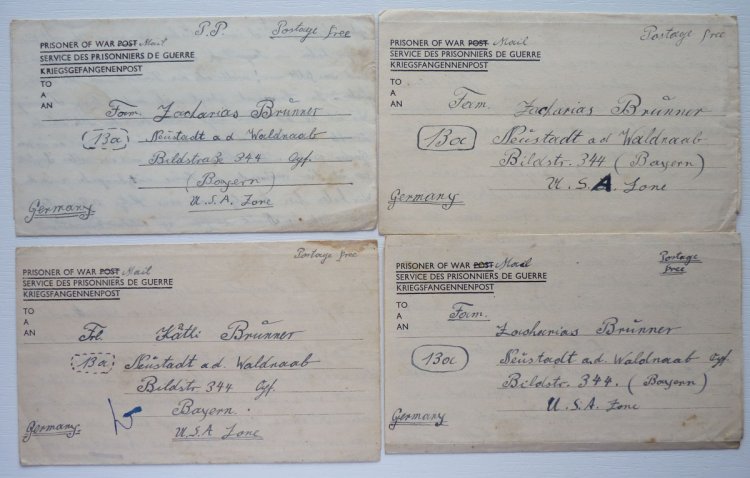 P.P. Postage free
PRISONER OF WAR POST Mail
SERVICE DES PRISONNIERS DE GUERRE
KRIEGSGEFANGENENPOST
TO
A
AN
Fam. Zacharias Brunner
13a
Neustadt a.d. Waldnaab
Bildstraße 344 Opf.
(Bayern)
U.S.A. Zone
Germany
Postage free
PRISONER OF WAR POST Mail
SERVICE DES PRISONNIERS DE GUERRE
KRIEGSFANGENNENPOST
TO
A
AN
Fam. Zacharias Brunner
13a
Neustadt a.d. Waldnaab
Bildstr. 344 (Bayern)
U.S.A. Zone
Germany
Postage free
PRISONER OF WAR POST Mail
SERVICE DES PRISONNIERS DE GUERRE
KRIEGSFANGENNENPOST
TO
A
AN
Frl. Kätti Brunner
13a
Neustadt a.d. Waldnaab
Bildstr. 344 Opf.
Bayern.
U.S.A Zone
Germany
Postage
free
PRISONER OF WAR POST Mail
SERVICE DES PRISONNIERS DE GUERRE
KRIEGSFANGENNENPOST
TO
A
AN
Fam.
Zacharias Brunner
13a
Neustadt a.d. Waldnaab Opf.
Bildstr. 344. (Bayern)
U.S.A. Zone
Germany